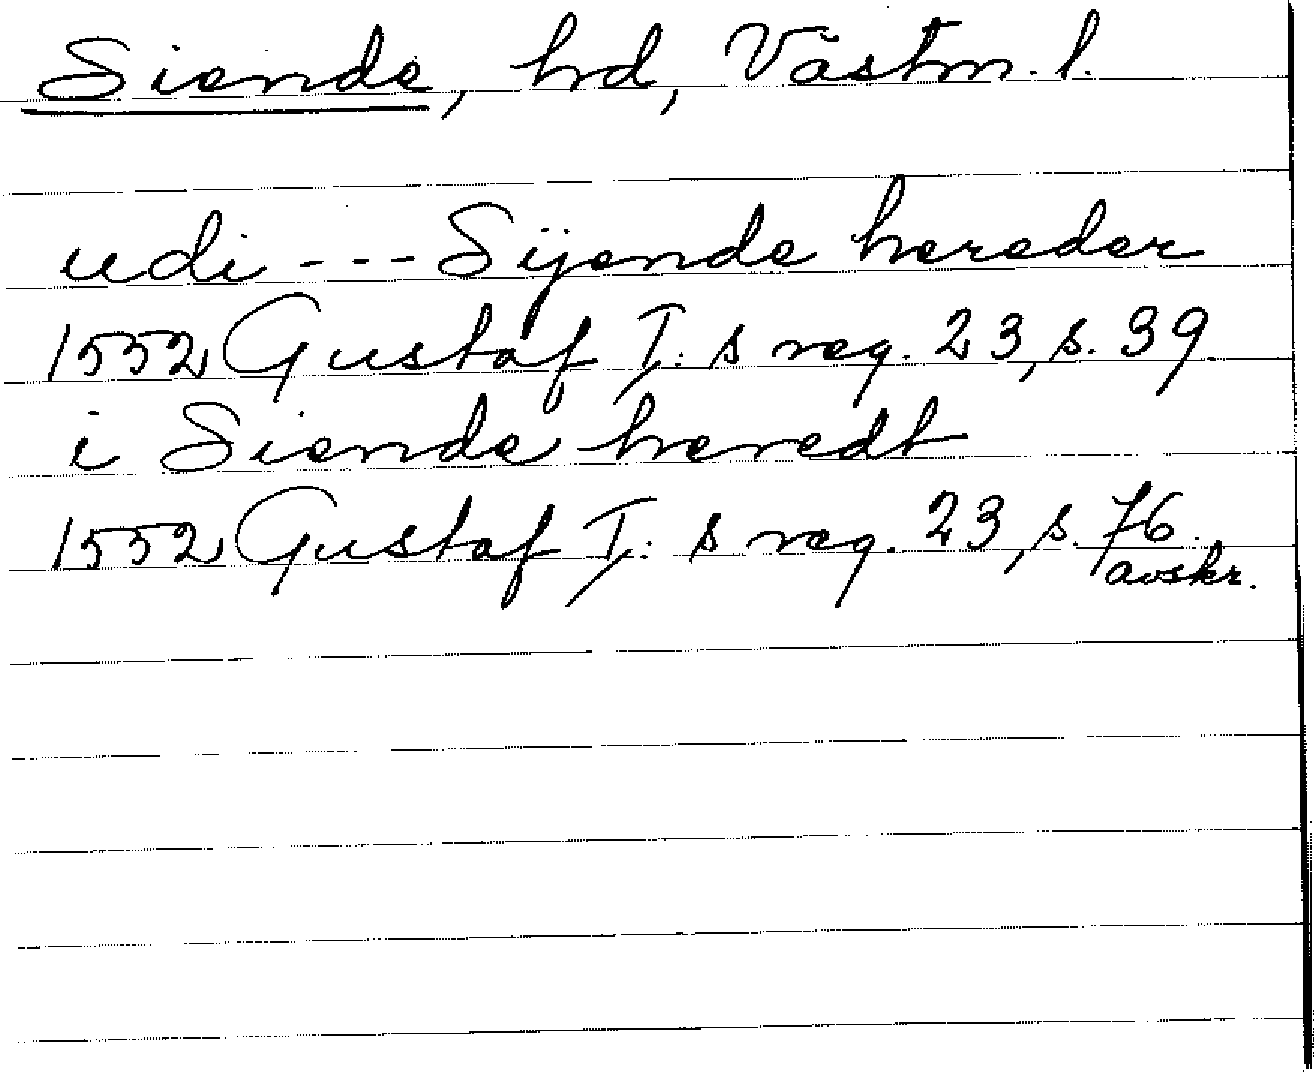 Siende, hd, Västm. l.
udi --- Sijende hereder
1552 Gustaf I:s reg. 23, s. 39.
i Siende heredt
1552 Gustaf I:s reg. 23, s. 76.
avskr.